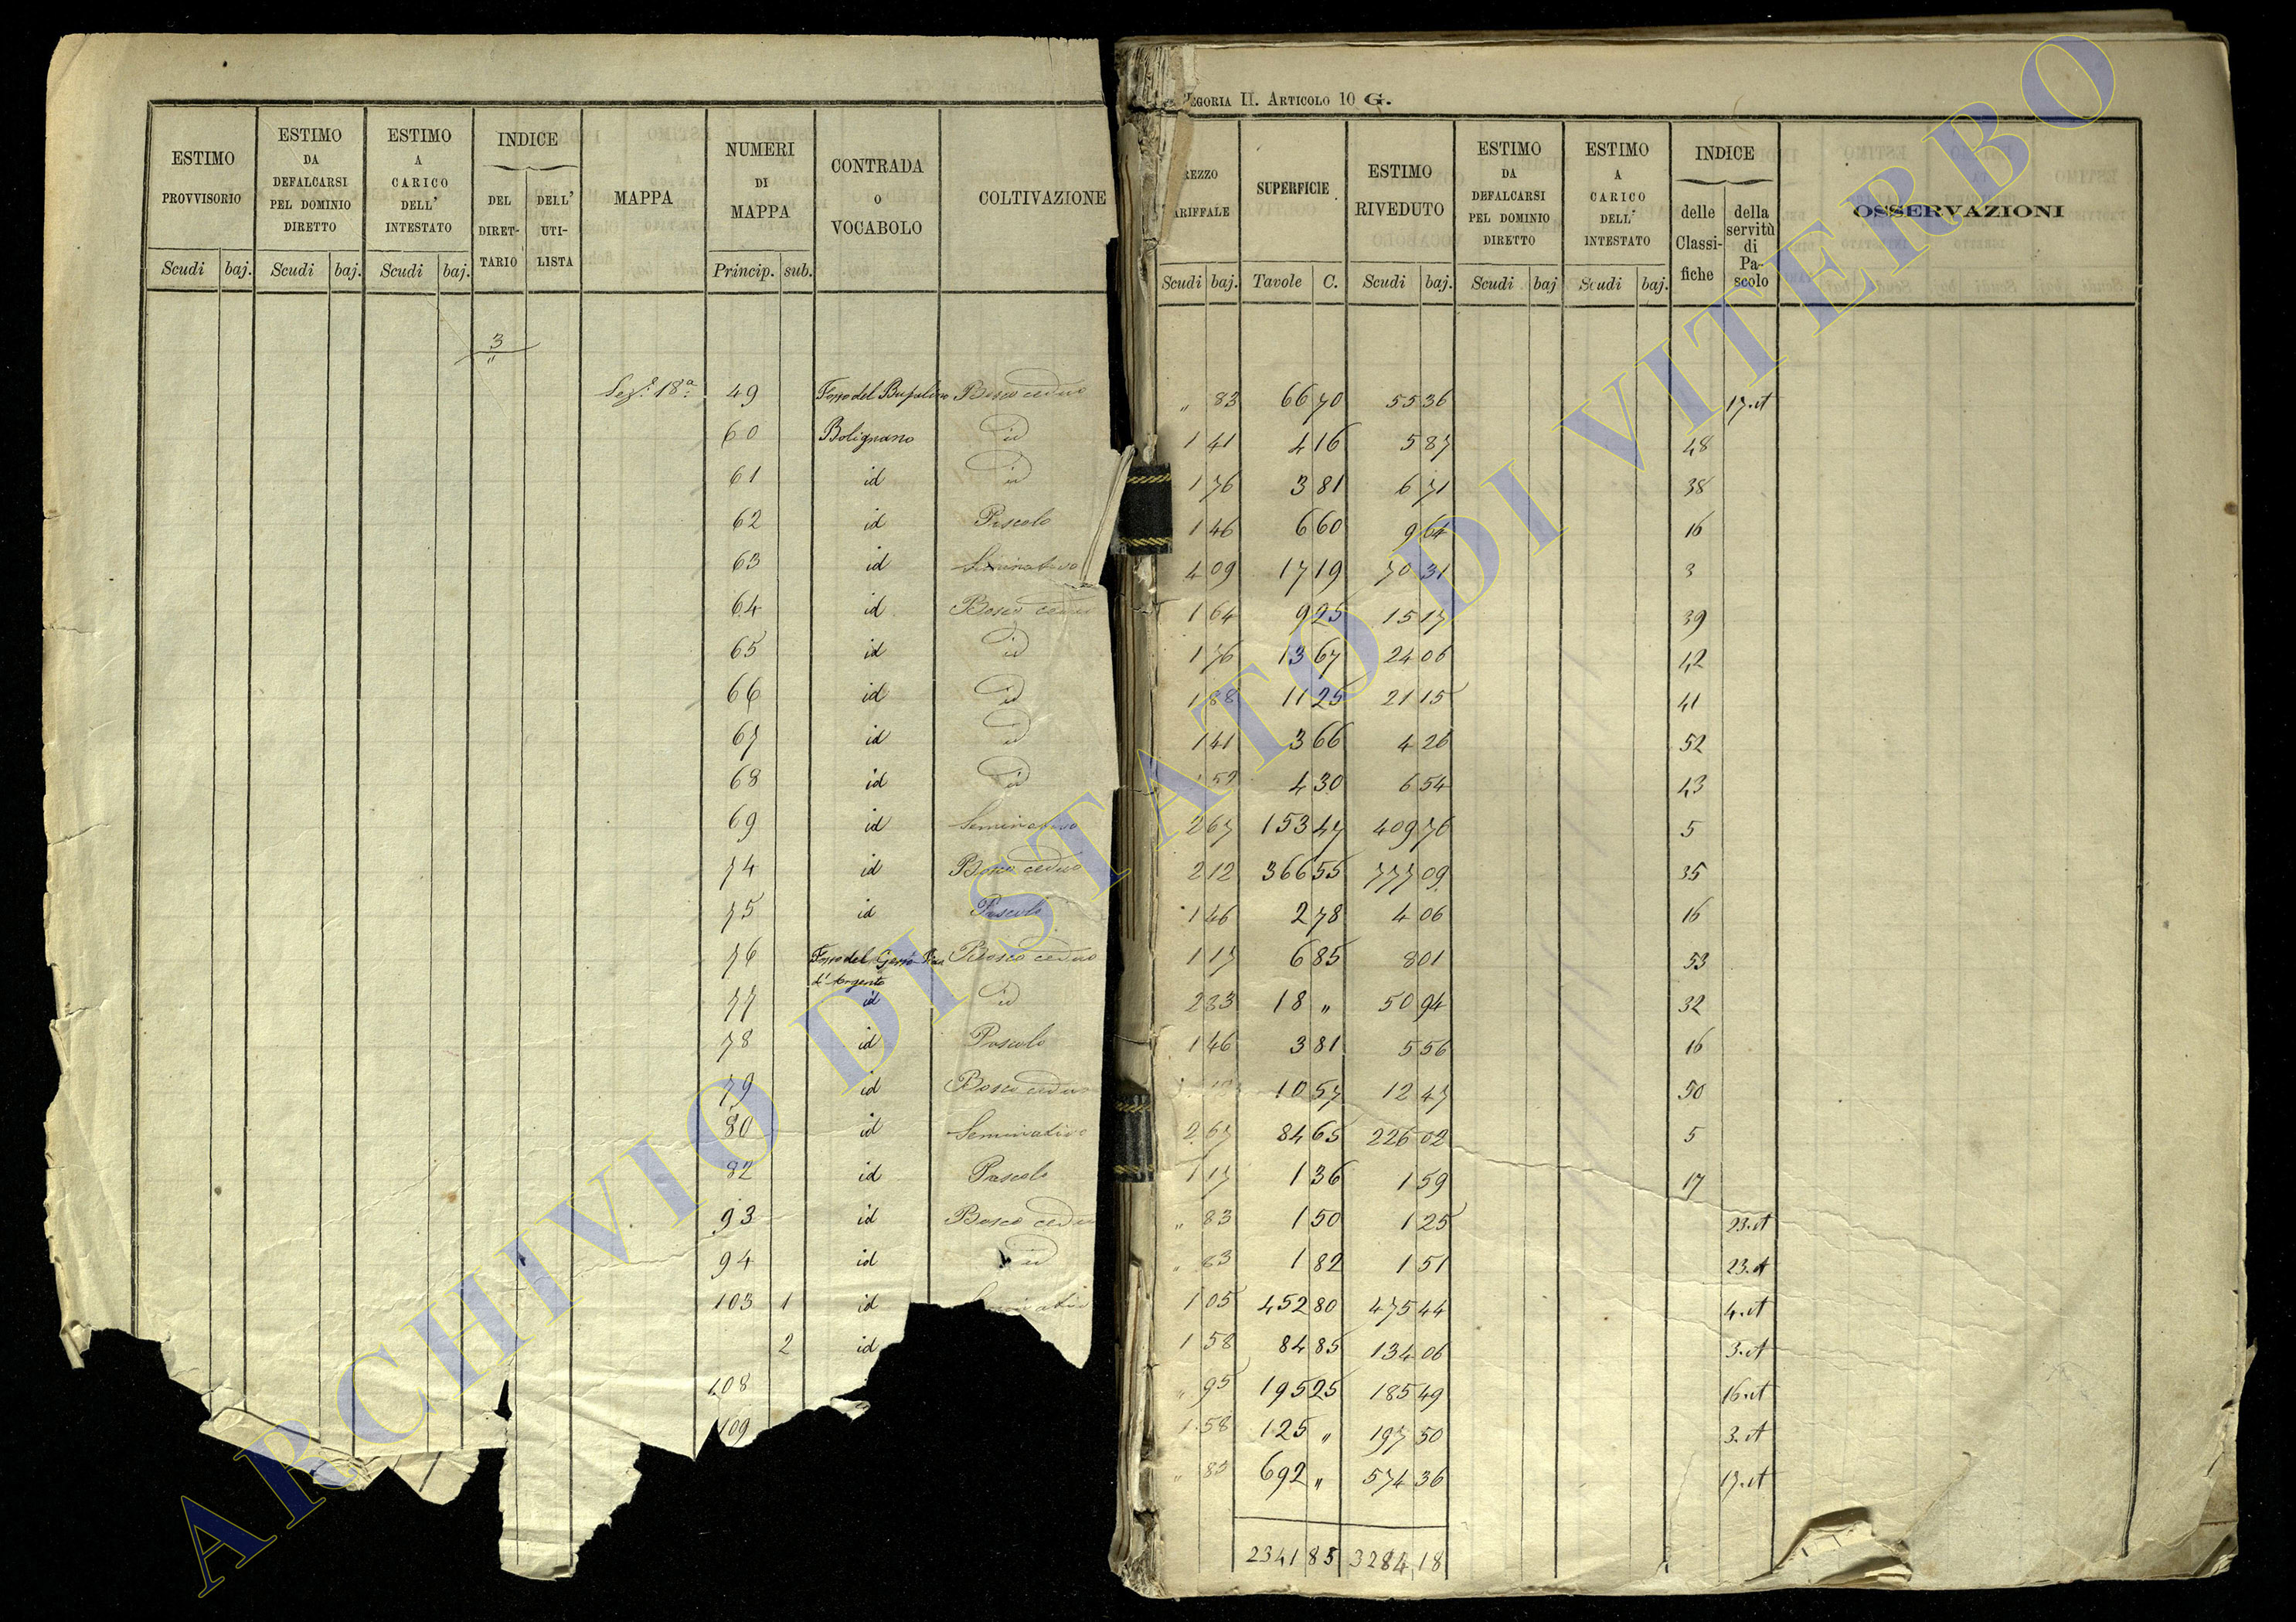 TEGORIA II. ARTICOLO 10 G.
ESTIMO PROVVISORIO | ESTIMO DA DEFALCARSI PEL DOMINIO DIRETTO | ESTIMO A CARICO DELL' INTESTATO | INDICE | MAPPA | NUMERI DI MAPPA | CONTRADA o VOCABOLO | COLTIVAZIONE
DEL DIRETTARIO | DELL' UTILISTA
Scudi | baj. | Scudi | baj. | Scudi | baj. | Princip. | sub.
REZZO ARIFFALE | SUPERFICIE | ESTIMO RIVEDUTO | ESTIMO DA DEFALCARSI PEL DOMINIO DIRETTO | ESTIMO A CARICO DELL' INTESTATO | INDICE | OSSERVAZIONI
delle Classifiche | della servitù di Pascolo
Scudi | baj. | Tavole | C. | Scudi | baj. | Scudi | baj | Scudi | baj.
3
"
Sez.e 18a 49 Fosso del Bufalino Bosco ceduo " 83 66 70 55 36 17.et
60 Bolignano id 1 41 4 16 5 87 48
61 id id 1 76 3 81 6 71 38
62 id Pascolo 1 46 6 60 9 64 16
63 id Seminativo 4 09 17 19 70 31 3
64 id Bosco ceduo 1 64 9 25 15 17 39
65 id id 1 76 13 67 24 06 42
66 id id 1 88 11 25 21 15 41
67 id id 1 41 3 66 4 26 52
68 id id 1 52 4 30 6 54 43
69 id Seminativo 2 67 153 47 409 76 5
74 id Bosco ceduo 2 12 366 55 777 09 35
75 id Pascolo 1 46 2 78 4 06 16
76 Fosso del Gesso Pian d'Argento Bosco ceduo 1 17 6 85 8 01 53
77 id id 2 83 18 " 50 94 32
78 id Pascolo 1 46 3 81 5 56 16
79 id Bosco ceduo 10 57 12 47 50
80 id Seminativo 2 67 84 65 226 02 5
82 id Pascolo 1 17 1 36 1 59 17
93 id Bosco ceduo " 83 1 50 1 25 23.et
94 id id " 83 1 82 1 51 23.et
103 1 id Seminativo 1 05 452 80 475 44 4.et
2 id 1 58 84 85 134 06 3.et
108 " 95 195 25 185 49 16.et
109 1 58 125 " 197 50 3.et
" 83 692 " 574 36 17.et
2341 85 3284 18
ARCHIVIO DI STATO DI VITERBO